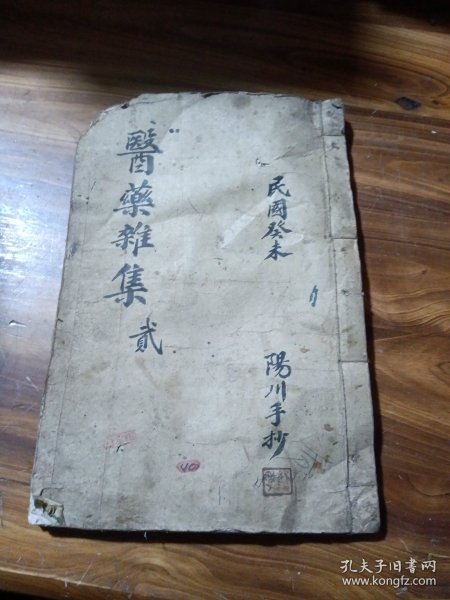 民國癸未
陽川手抄
醫藥雜集
貳
40
孔夫子旧书网
www.kongfz.com